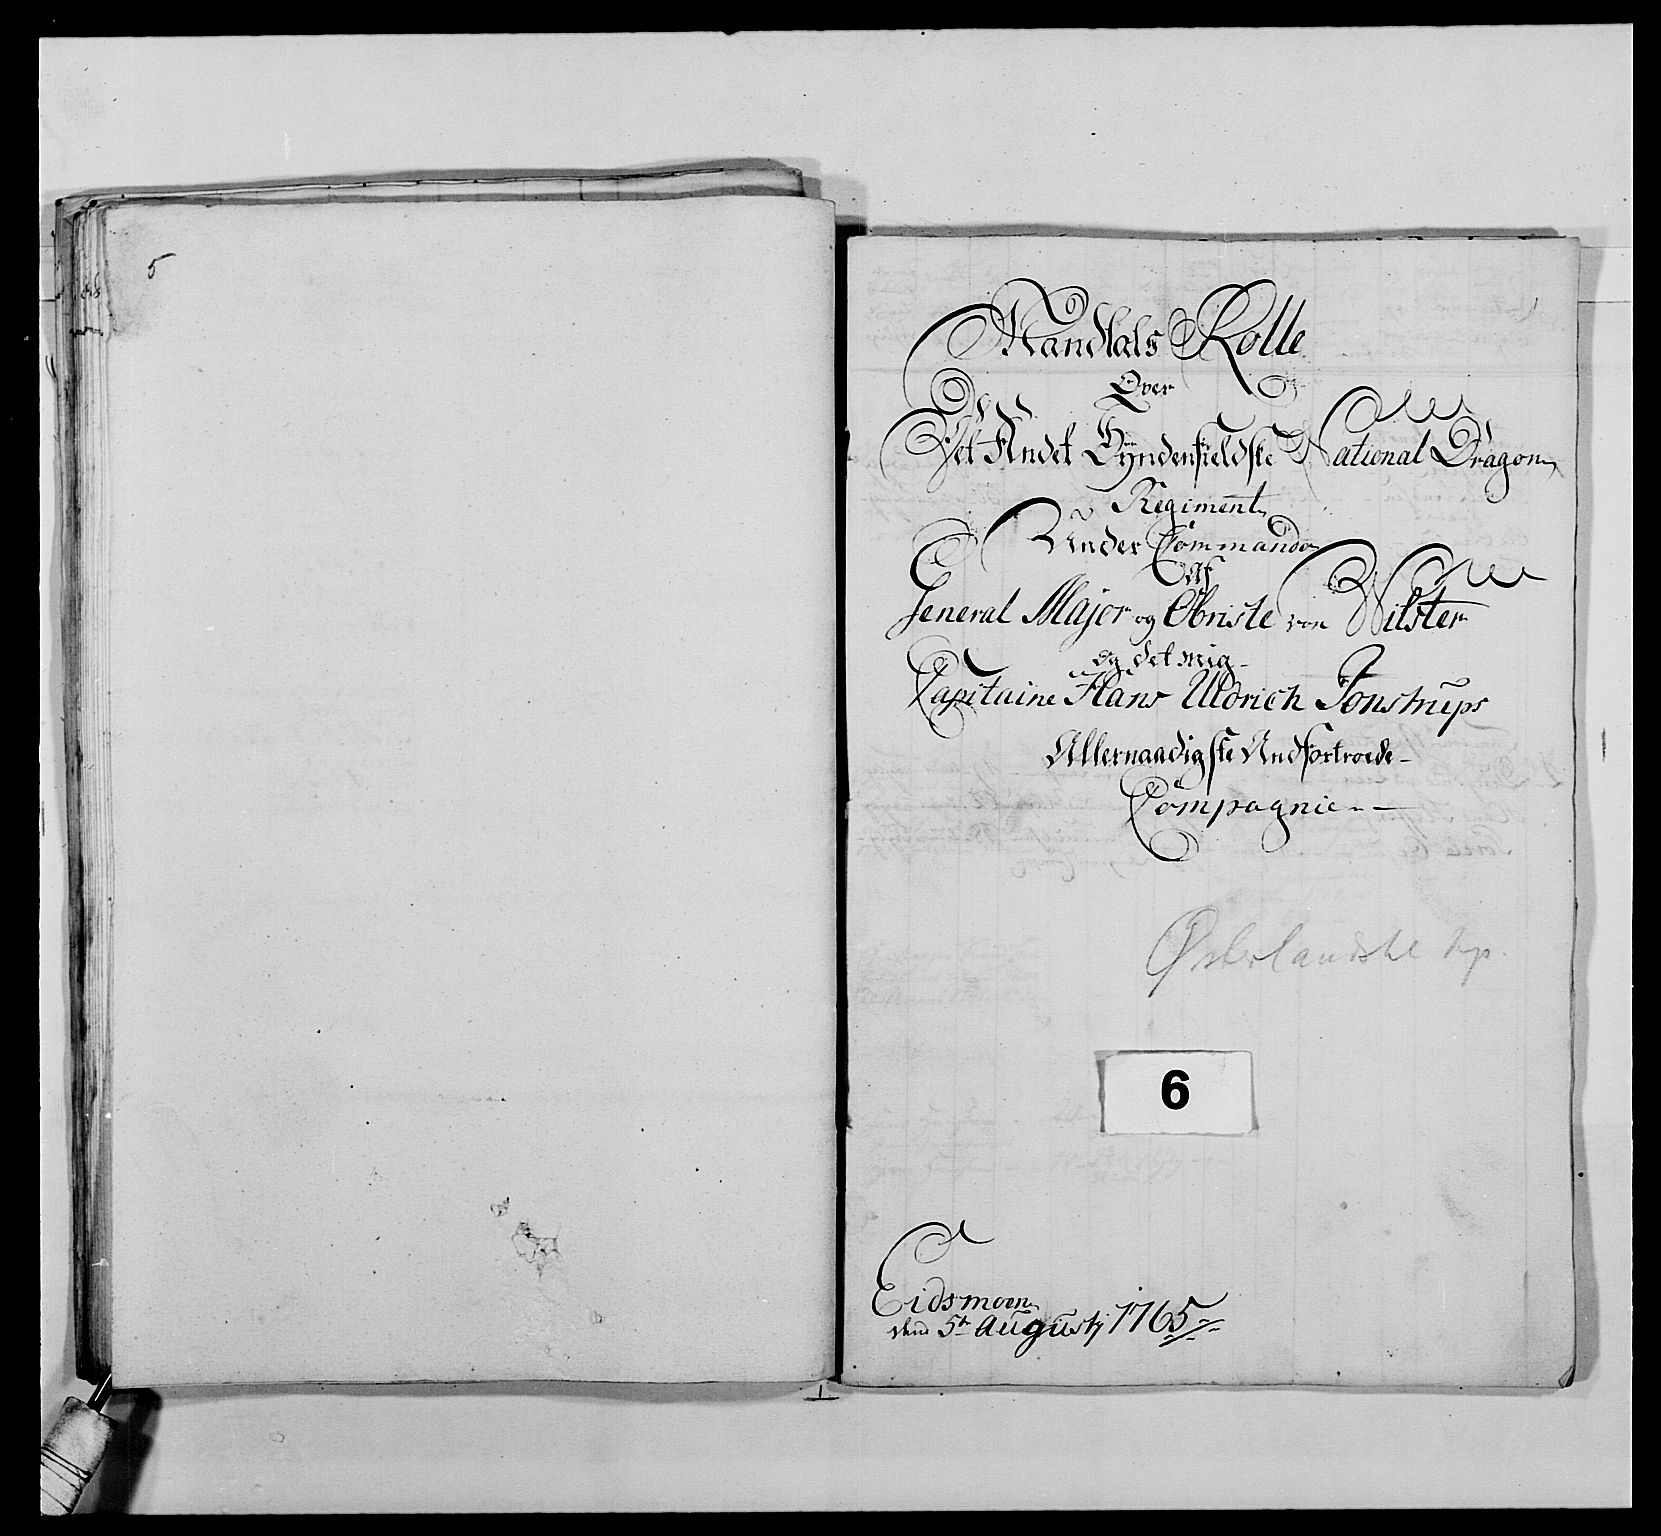 5
Mandtals Rolle
Over
Det Andet Syndenfieldske National Dragon
Regiment
Under Commando
Af
General Major og Obriste von Wilster
og det mig
Capitaine Hans Uldrich Tonstrups
Allernaadigste Andfortroede
Compagnie
Østerlandske kp.
6
Eidsmoen
den 5te Augustj 1765